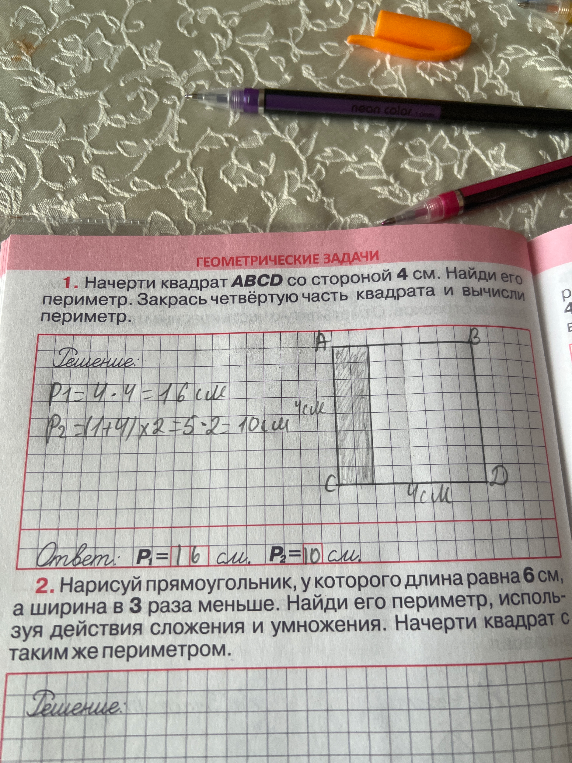 neon color
ГЕОМЕТРИЧЕСКИЕ ЗАДАЧИ
1. Начерти квадрат ABCD со стороной 4 см. Найди его
периметр. Закрась четвёртую часть квадрата и вычисли
периметр.
Решение:
P1 = 4 · 4 = 16 см
P2 = (1+4) x 2 = 5 · 2 = 10 см
A B
4см
C D
4см
Ответ: P1 = 16 см. P2 = 10 см.
2. Нарисуй прямоугольник, у которого длина равна 6 см,
а ширина в 3 раза меньше. Найди его периметр, исполь-
зуя действия сложения и умножения. Начерти квадрат с
таким же периметром.
Решение: